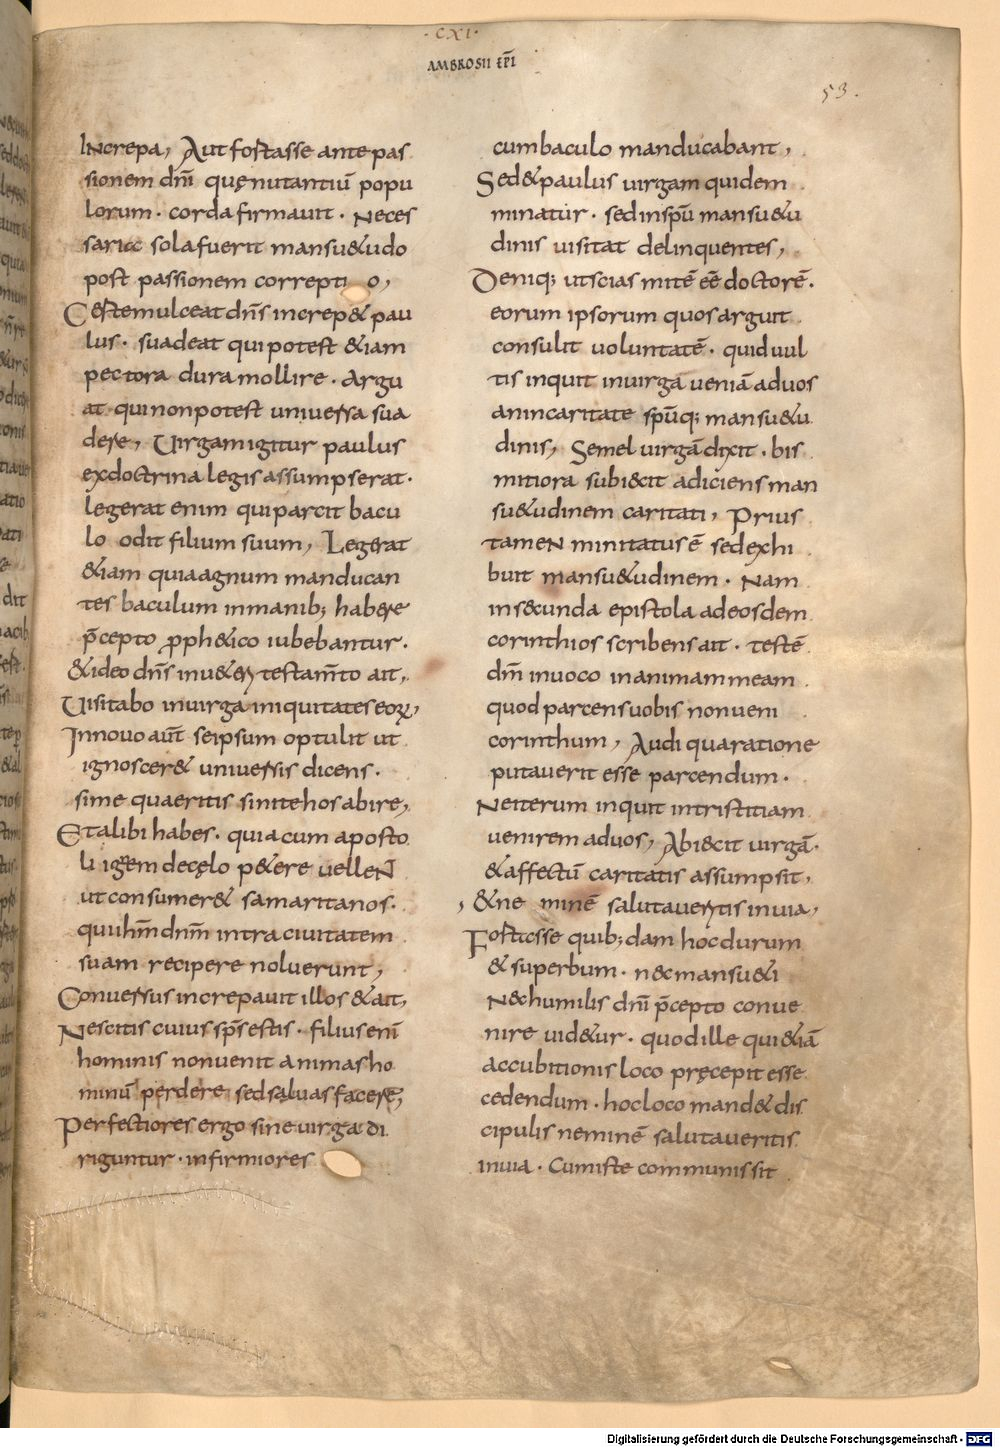 ·CXI·
AMBROSII EPĪ
53.
INcrepa, Aut fortasse ante pas
sionem dnī quę nutantiū popu
lorum· corda firmauit· Neces
saria sola fuerit mansu&udo
post passionem correpti o,
C&erte mulceat dn̄s increp& pau
lus· suadeat qui potest &iam
pectora dura mollire· Argu
at qui non potest uniuersa sua
dere, Uirgam igitur paulus
ex doctrina legis assumpserat·
legerat enim qui parcit bacu
lo odit filium suum, Legerat
&iam quia agnum manducan
tes baculum in manib; habere
p̄cepto pph&ico iubebantur·
&ideo dn̄s in u&eri testam̄to ait,
Uisitabo in uirga iniquitates eorꝝ,
In nouo aut̄ seipsum optulit ut
ignoscer& uniuersis dicens·
si me quaeritis sinite hos abire,
Et alibi habes· quia cum aposto
li ignem de cęlo p&ere uelleNt
ut consumer& samaritanos·
qui ihm̄ dnm̄ intra ciuitatem
suam recipere noluerunt,
Conuersus increpauit illos & ait,
Nescitis cuius sp̄s estis· filius enī
hominis non uenit animas ho
minū perdere sed saluas facere,
Perfectiores ergo sine uirga di
riguntur· infirmiores
cum baculo manducabant,
Sed & paulus uirgam quidem
minatur· sed in spū mansu&u
dinis uisitat delinquentes,
Deniq; ut scias mitē eē doctorē·
eorum ipsorum quos arguit
consulit uoluntatē· quid uul
tis inquit in uirga ueniā ad uos
an in caritate spūq; mansu&u
dinis, Semel uirgā dixit· bis
mitiora subiecit adiciens man
su&udinem caritati, Prius
tameN minitatus ē sed exhi
buit mansu&udinem· Nam
in secunda epistola ad eosdem
corinthios scribens ait· testē
dm̄ inuoco in animam meam
quod parcens uobis non ueni
corinthum, Audi qua ratione
putauerit esse parcendum·
Ne iterum inquit in tristitiam
uenirem ad uos, Abiecit uirgā·
& affectū caritatis assumpsit,
, & ne minē salutaueritis in uia,
Fortesse quib;dam hoc durum
& superbum· nec mansu&i
Nec humilis dnī p̄cepto conue
nire uid&ur· quod ille qui &iā
accubitionis loco pręcepit esse
cedendum· hoc loco mand& dis
cipulis neminē salutaueritis
in uia· Cum iste communis sit
Digitalisierung gefördert durch die Deutsche Forschungsgemeinschaft - DFG